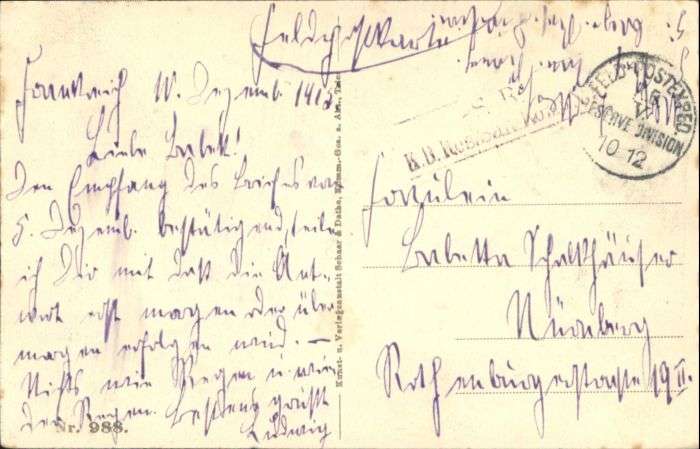 Feldpostkarte
Frankreich 10. Dezemb. 1915
Liebe Babett!
Den Empfang des Briefes vom
5. Dezemb. bestätigend, teile
ich Dir mit daß die Ant-
wort erst morgen oder über
morgen erfolgen wird. —
Nichts wie Regen u. wie-
der Regen. Bestens grüßt
Ludwig
Nr. 988.
Kunst- u. Verlagsanstalt Schaar & Dathe, Komm.-Ges. a. Akt., Trier
K.B. Res.
FELD-POSTEXPED.
RESERVE DIVISION
10 12
Fräulein
Babetta Schalkhäuser
Nürnberg
Rothenburgerstrasse 19 II.